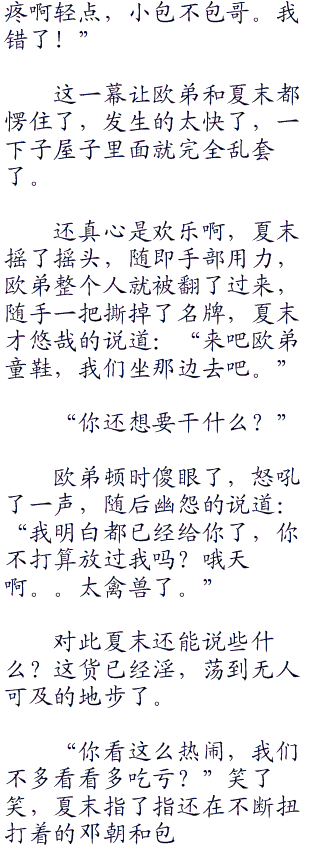 疼啊轻点，小包不包哥。我
错了！”
这一幕让欧弟和夏末都
愣住了，发生的太快了，一
下子屋子里面就完全乱套
了。
还真心是欢乐啊，夏末
摇了摇头，随即手部用力，
欧弟整个人就被翻了过来，
随手一把撕掉了名牌，夏末
才悠哉的说道：“来吧欧弟
童鞋，我们坐那边去吧。”
“你还想要干什么？”
欧弟顿时傻眼了，怒吼
了一声，随后幽怨的说道：
“我明白都已经给你了，你
不打算放过我吗？哦天
啊。。太禽兽了。”
对此夏末还能说些什
么？这货已经淫，荡到无人
可及的地步了。
“你看这么热闹，我们
不多看看多吃亏？”笑了
笑，夏末指了指还在不断扭
打着的邓朝和包